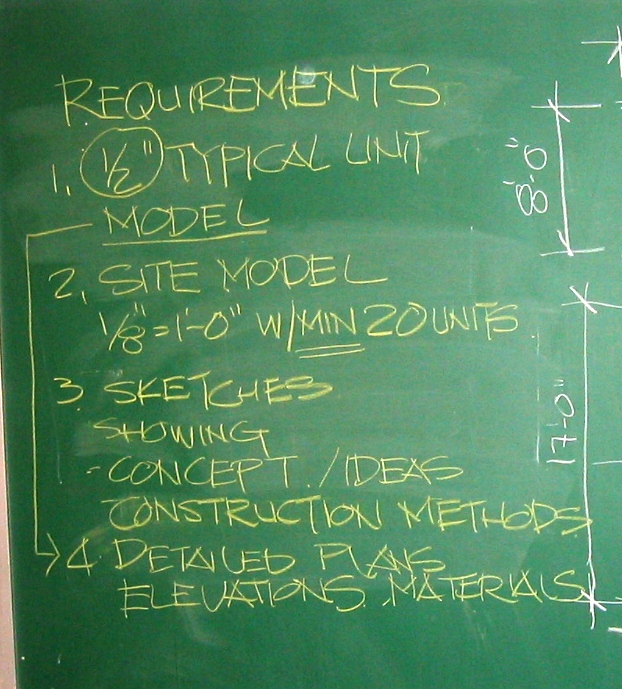 REQUIREMENTS
1. 1/2" TYPICAL UNIT
MODEL
2, SITE MODEL
1/8"=1'-0" W/MIN 20 UNITS
3. SKETCHES
SHOWING
- CONCEPT. / IDEAS
CONSTRUCTION METHODS
4 DETAILED PLANS
ELEVATIONS, MATERIALS
8'-0"
17'-0"